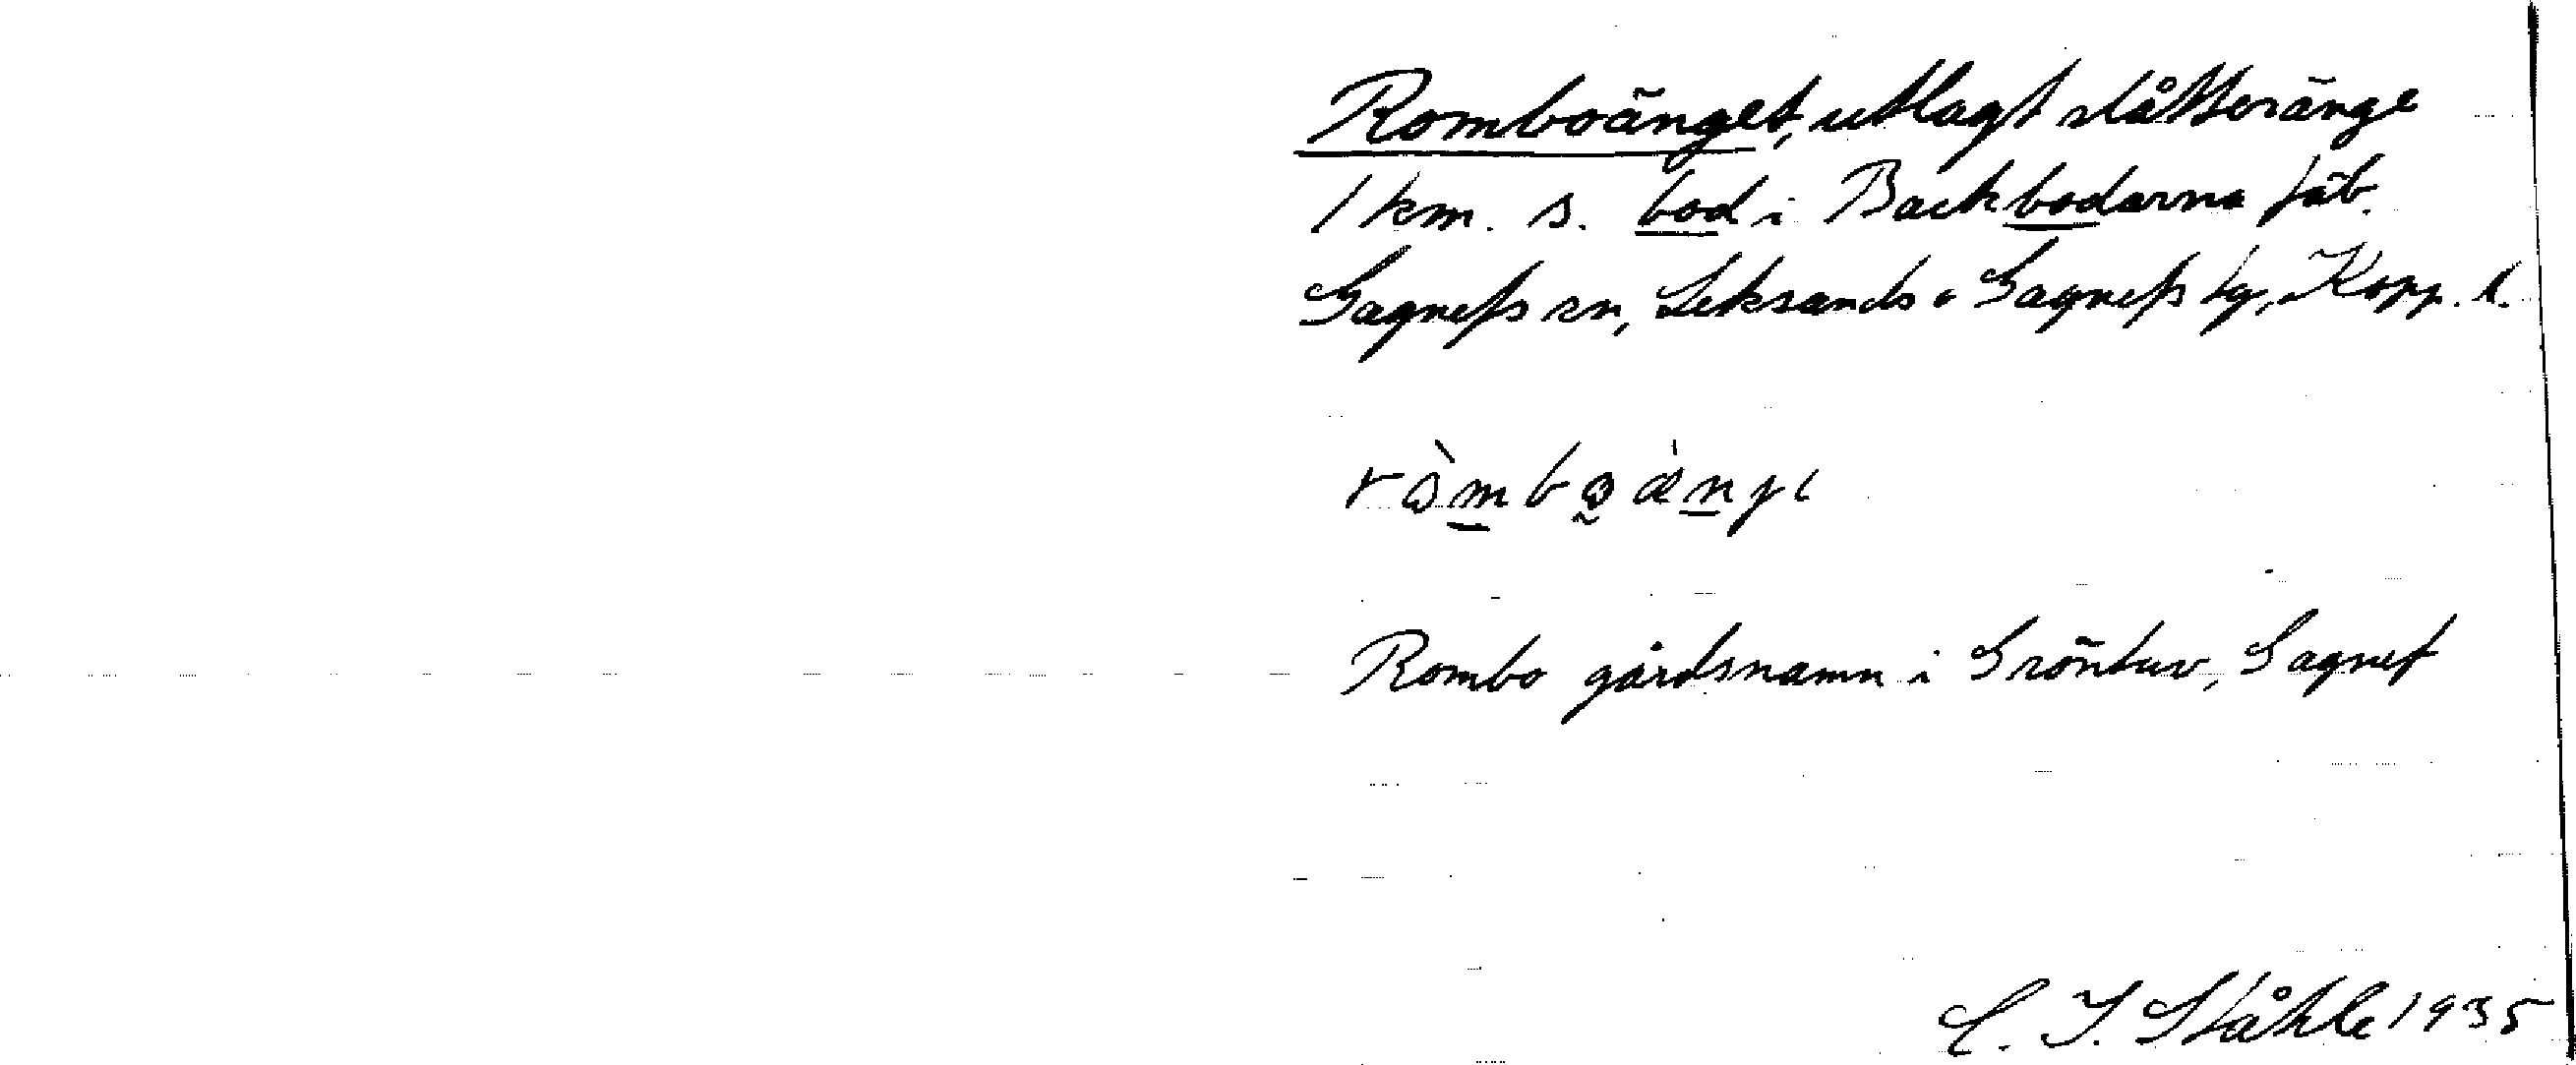 Romboänget, utlagt slåtteränge
1 km. s. bod i Backbodarna fäb.
Gagnefs sn, Leksands o Gagnefs tg, Kopp. l.
Rombo gårdsnamn i Gröntuv, Gagnef
C. I. Ståhle 1935